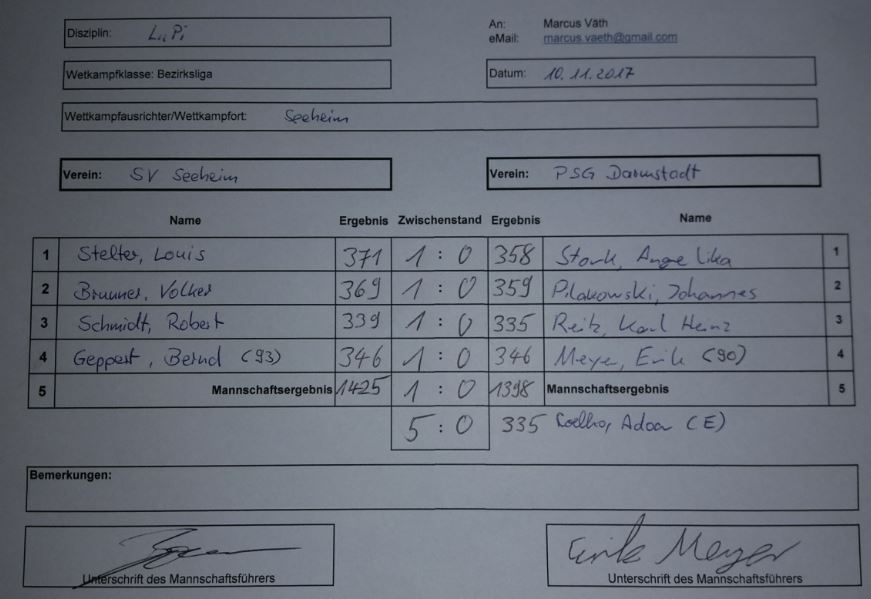 Disziplin: LuPi
An: Marcus Väth
eMail: marcus.vaeth@gmail.com
Wetkampfklasse: Bezirksliga
Datum: 10.11.2017
Wettkampfausrichter/Wettkampfort: Seeheim
Verein: SV Seeheim
Verein: PSG Darmstadt
Name Ergebnis Zwischenstand Ergebnis Name
1 Stelter, Louis 371 1 : 0 358 Stork, Angelika 1
2 Brunner, Volker 369 1 : 0 359 Pilakowski, Johannes 2
3 Schmidt, Robert 339 1 : 0 335 Reitz, Karl Heinz 3
4 Geppert, Bernd (93) 346 1 : 0 346 Meyer, Erik (90) 4
5 Mannschaftsergebnis 1425 1 : 0 1398 Mannschaftsergebnis 5
5 : 0 335 Coelho, (E)
Bemerkungen:
Erik Meyer
Unterschrift des Mannschaftsführers
Unterschrift des Mannschaftsführers